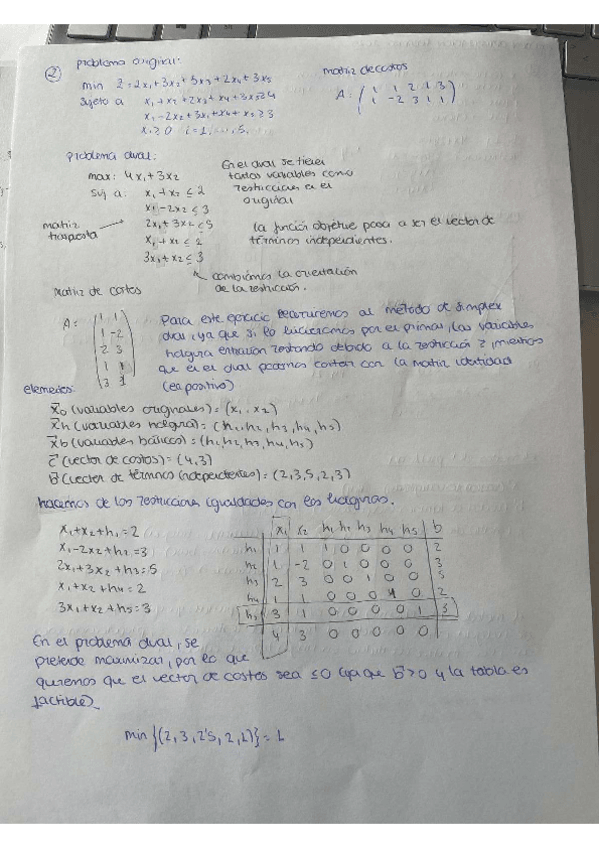 ② problema original:
min Z = 2x₁ + 3x₂ + 5x₃ + 2x₄ + 3x₅
sujeto a x₁ + x₂ + 2x₃ + x₄ + 3x₅ ≥ 4
x₁ - 2x₂ + 3x₃ + x₄ + x₅ ≥ 3
xᵢ ≥ 0 i = 1, ..., 5.
matriz de costos
A: ( 1 1 2 1 3
1 -2 3 1 1 )
Problema dual:
max: 4x₁ + 3x₂
Suj a: x₁ + x₂ ≤ 2
x₁ - 2x₂ ≤ 3
2x₁ + 3x₂ ≤ 5
x₁ + x₂ ≤ 2
3x₁ + x₂ ≤ 3
matriz
traspuesta
En el dual se tienen
tantas variables como
restricciones en el
original
la función objetivo pasa a ser el vector de
términos independientes.
cambiamos la orientación
de la restricción.
Matriz de costos
A: ( 1 1
1 -2
2 3
1 1
3 1 )
Para este ejercicio recurriremos al método de simplex
dual, ya que si lo hiciéramos por el primal, las variables
holgura entrarían restando debido a la restricción ≥, mientras
que en el dual podemos contar con la matriz identidad
(en positivo)
elementos:
x̄o (variables originales) = (x₁, x₂)
x̄h (variables holgura) = (h₁, h₂, h₃, h₄, h₅)
x̄b (variables básicas) = (h₁, h₂, h₃, h₄, h₅)
c̄ (vector de costos) = (4,3)
b̄ (vector de términos independientes) = (2,3,5,2,3)
hacemos de las restricciones igualdades con las holguras.
x₁ + x₂ + h₁ = 2
x₁ - 2x₂ + h₂ = 3
2x₁ + 3x₂ + h₃ = 5
x₁ + x₂ + h₄ = 2
3x₁ + x₂ + h₅ = 3
x₁ x₂ h₁ h₂ h₃ h₄ h₅ b
h₁ 1 1 1 0 0 0 0 2
h₂ 1 -2 0 1 0 0 0 3
h₃ 2 3 0 0 1 0 0 5
h₄ 1 1 0 0 0 1 0 2
h₅ 3 1 0 0 0 0 1 3
4 3 0 0 0 0 0
En el problema dual, se
pretende maximizar, por lo que
queremos que el vector de costos sea ≤0 (ya que b̄>0 y la tabla es
factible).
min {(2, 3, 2'5, 2, 1)} = 1